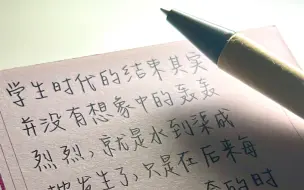 学生时代的结束其实
并没有想象中的轰轰
烈烈,就是水到渠成
地发生了,只是在后来每
的时